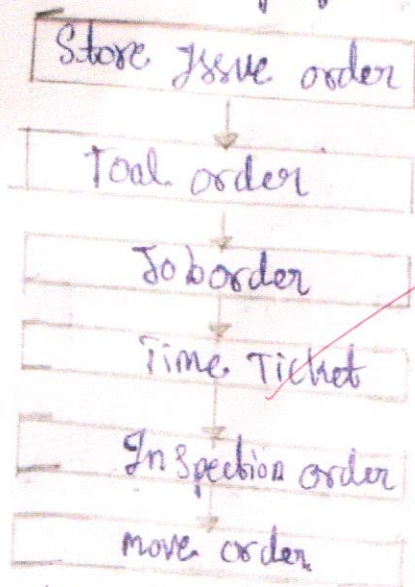 Store Issue order
Toal order
Job order
Time Ticket
Inspection order
move order